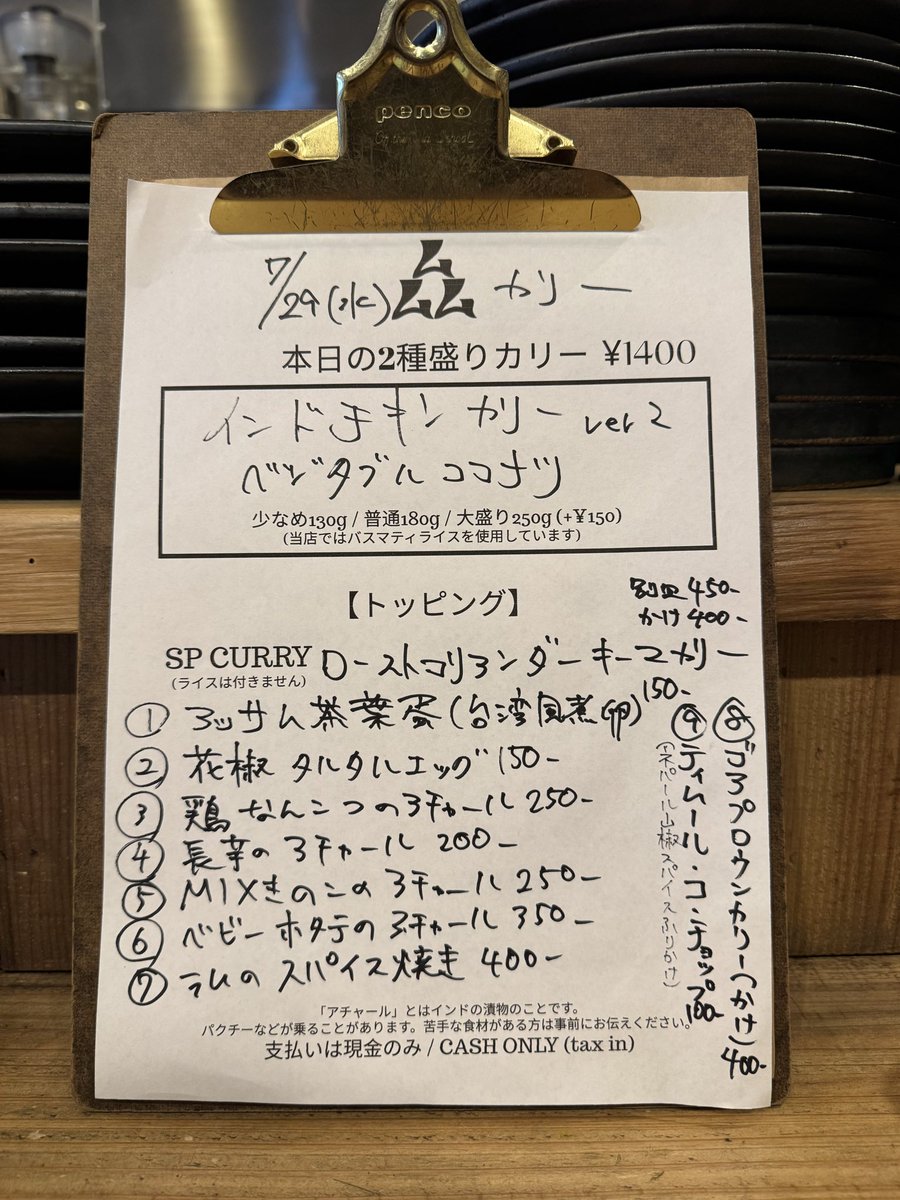 penco
7/29(水) ムムム カリー
本日の2種盛りカリー ¥1400
インドチキンカリー ver2
ベジタブルココナツ
少なめ130g / 普通180g / 大盛り250g (+¥150)
(当店ではバスマティライスを使用しています)
【トッピング】
別皿 450-
かけ 400-
SP CURRY ローストコリアンダーキーマカリー
(ライスは付きません)
① アッサム茶葉蛋(台湾風煮卵) 150-
② 花椒タルタルエッグ 150-
③ 鶏なんこつのアチャール 250-
④ 長芋のアチャール 200-
⑤ MIXきのこのアチャール 250-
⑥ ベビーホタテのアチャール 350-
⑦ ラムのスパイス焼き 400-
⑧ ゴアプロウンカリー(つかけ) 400-
⑨ ティムール・コ・チョップ 100-
(ネパール山椒スパイスふりかけ)
「アチャール」とはインドの漬物のことです。
パクチーなどが乗ることがあります。苦手な食材がある方は事前にお伝えください。
支払いは現金のみ / CASH ONLY (tax in)